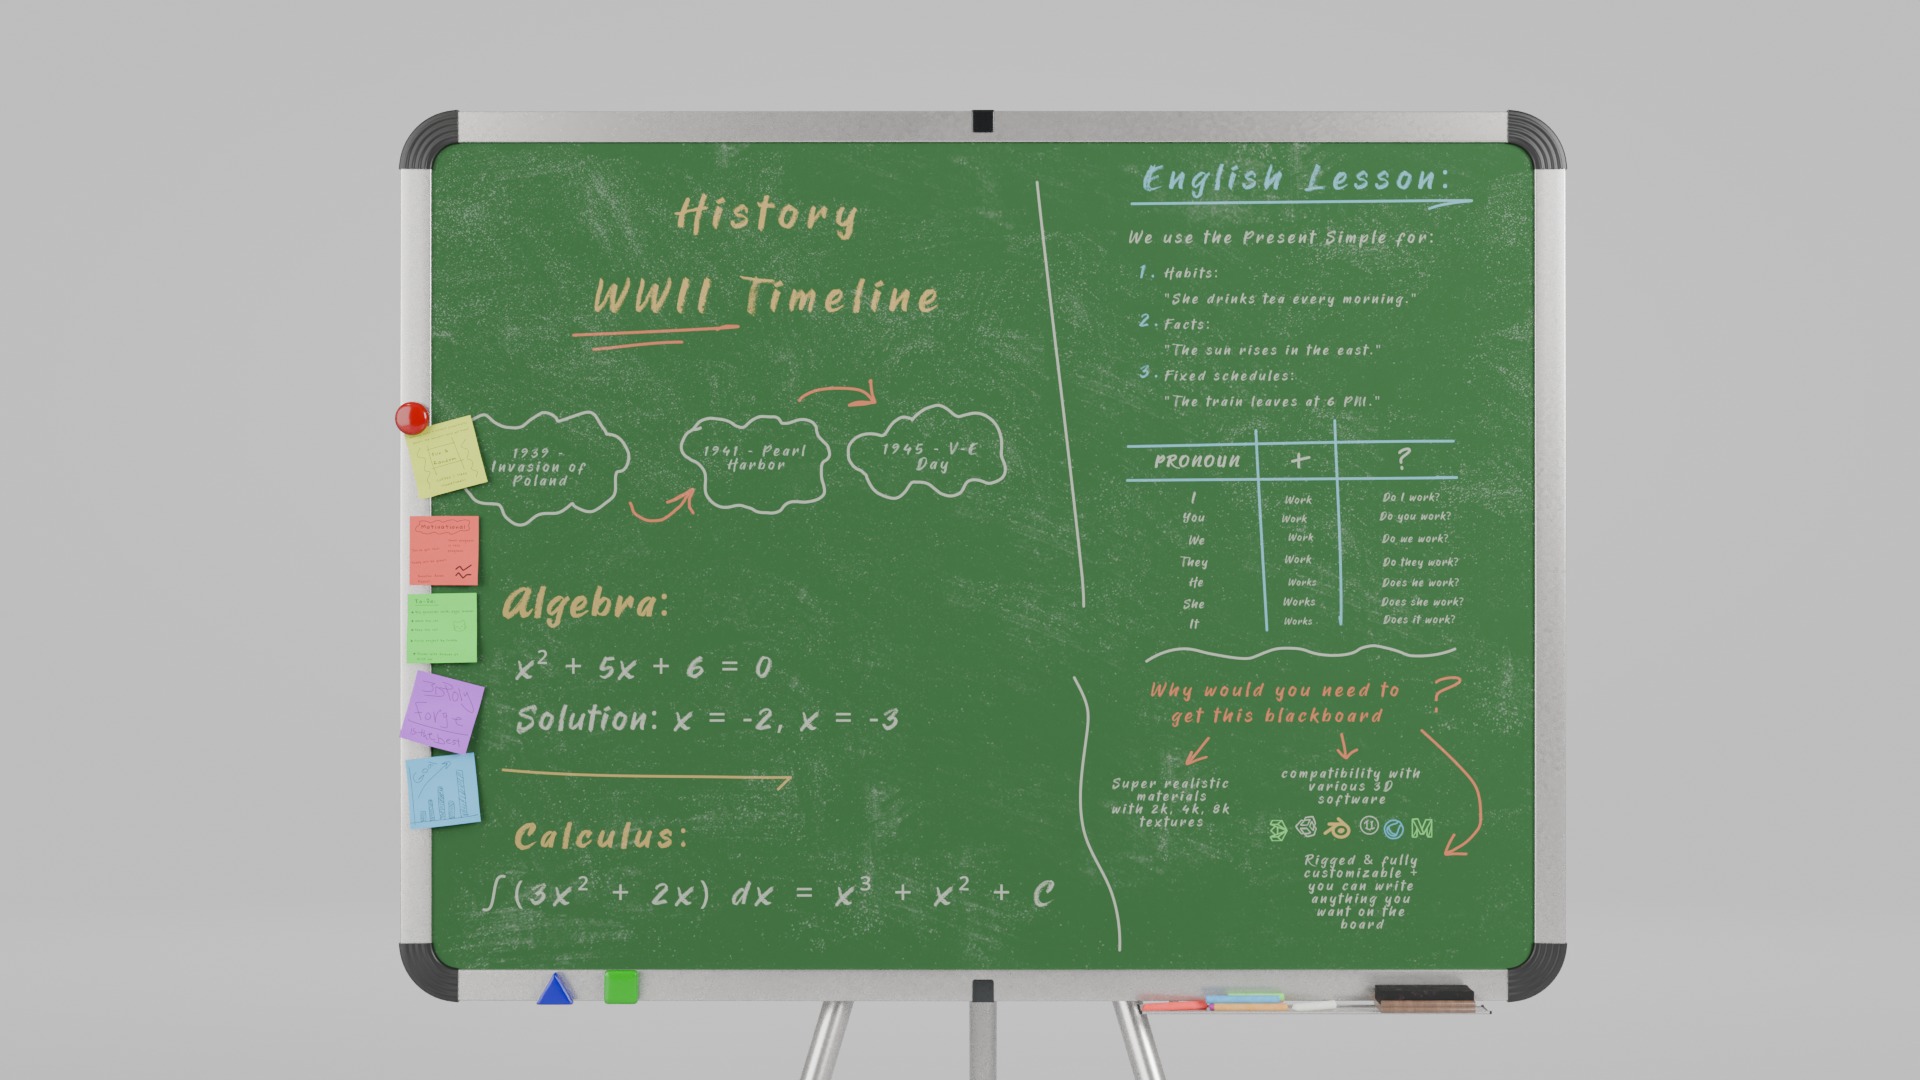 History
WWII Timeline
1939 -
Invasion of
Poland
1941 - Pearl
Harbor
1945 - V-E
Day
Algebra:
x² + 5x + 6 = 0
Solution: x = -2, x = -3
Calculus:
∫(3x² + 2x) dx = x³ + x² + C
English Lesson:
We use the Present Simple for:
1. Habits:
"She drinks tea every morning."
2. Facts:
"The sun rises in the east."
3. Fixed schedules:
"The train leaves at 6 PM."
PRONOUN + ?
I Work Do I work?
You Work Do you work?
We Work Do we work?
They Work Do they work?
He Works Does he work?
She Works Does she work?
It Works Does it work?
Why would you need to ?
get this blackboard
Super realistic
materials
with 2k, 4k, 8k
textures
compatibility with
various 3D
software
Rigged & fully
customizable +
you can write
anything you
want on the
board
Motivational
3DPoly
Forge
is the best